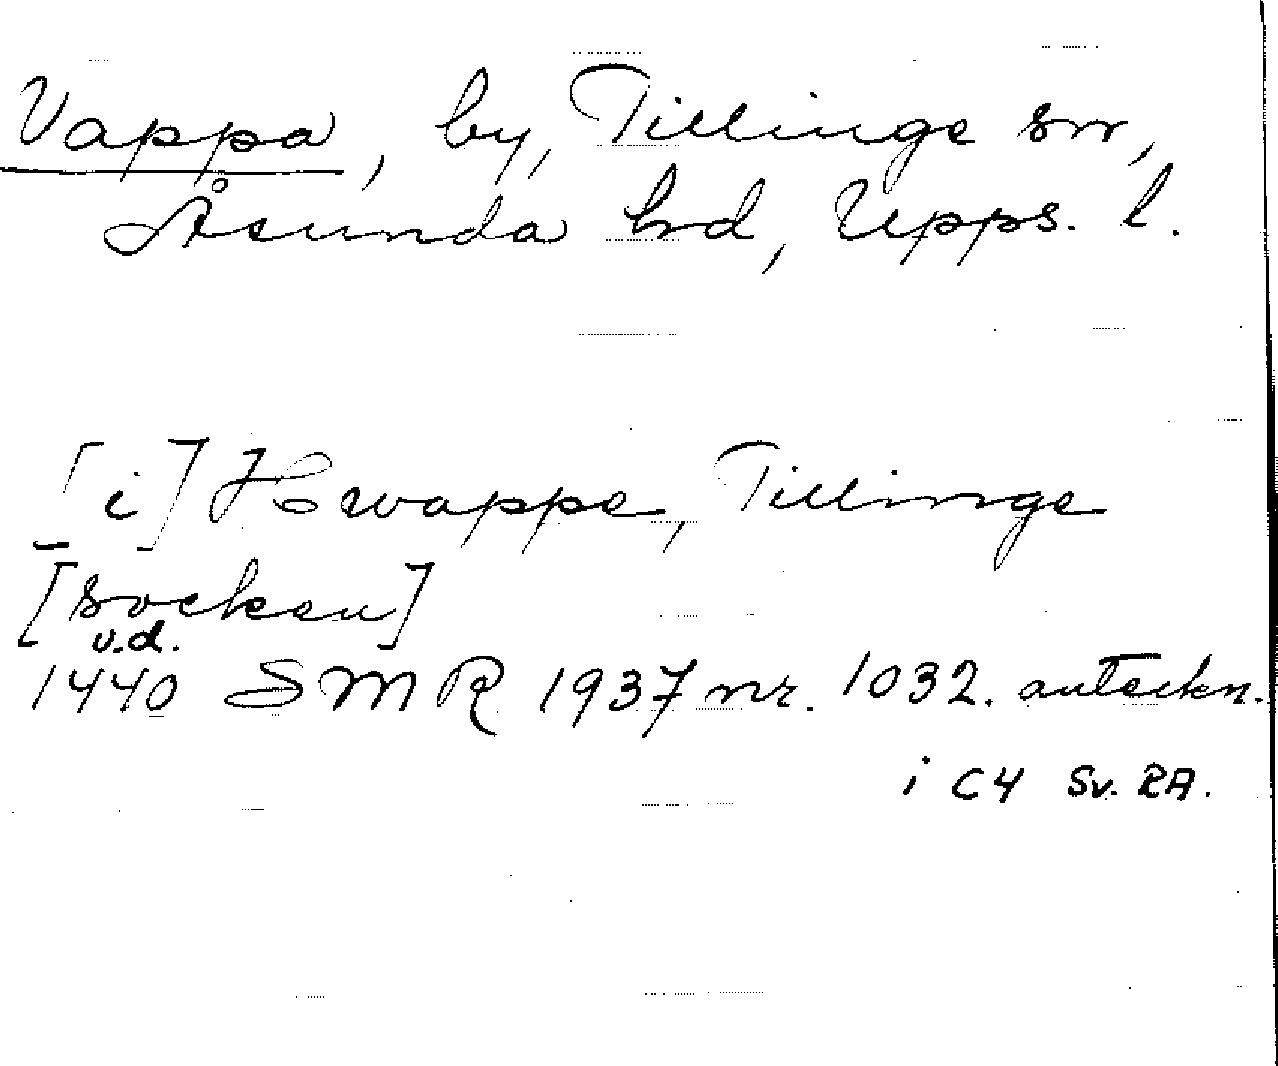 Vappa, by, Tillinge sn,
Åsunda hd, Upps. l.
[i] Hwappe, Tillinge
[socken]
u.d.
1440 SMR 1937 nr. 1032. anteckn.
i C4 Sv. RA.